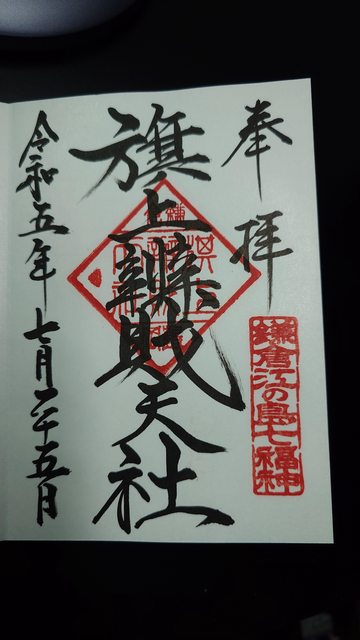 奉拝
鎌倉江の島七福神
旗上辨財天社
令和五年七月二十五日